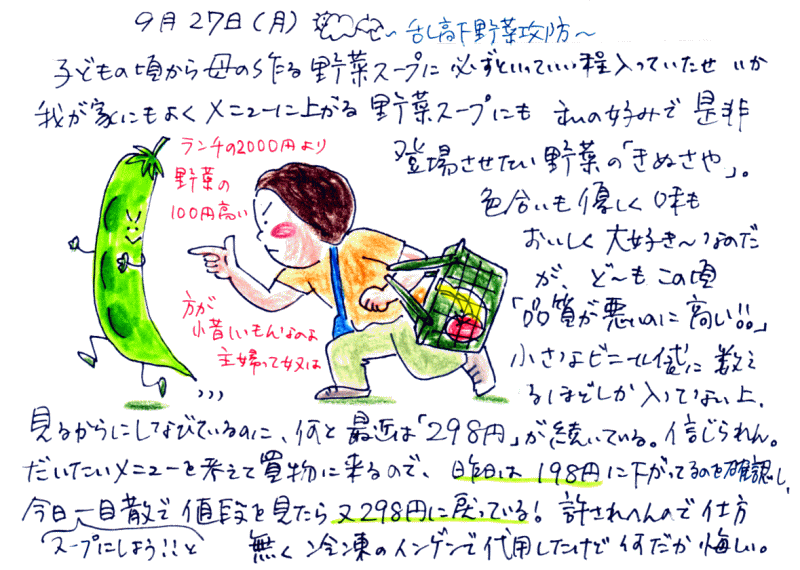 9月27日(月) ～乱高下野菜攻防～
子どもの頃から母の作る野菜スープに必ずといっていい程入っていたせいか
我が家にもよくメニューに上がる野菜スープにも私の好みで是非
登場させたい野菜の「きぬさや」。
ランチの2000円より
野菜の
100円高い
方が
惜しいもんなのよ
主婦って奴は
色合いも優しく味も
おいしく大好き～なのだ
が、ど～もこの頃
「品質が悪いのに高い!!」
小さなビニール袋に数え
るほどしか入ってない上、
見るからにしなびているのに、何と最近は「298円」が続いている。信じられん。
だいたいメニューを考えて買物に来るので、昨日は198円に下がってるのを確認し、
今日一目散で値段を見たら又298円に戻っている!許されへんので仕方
スープにしよう!!と
無く冷凍のインゲンで代用したけど何だか悔しい。